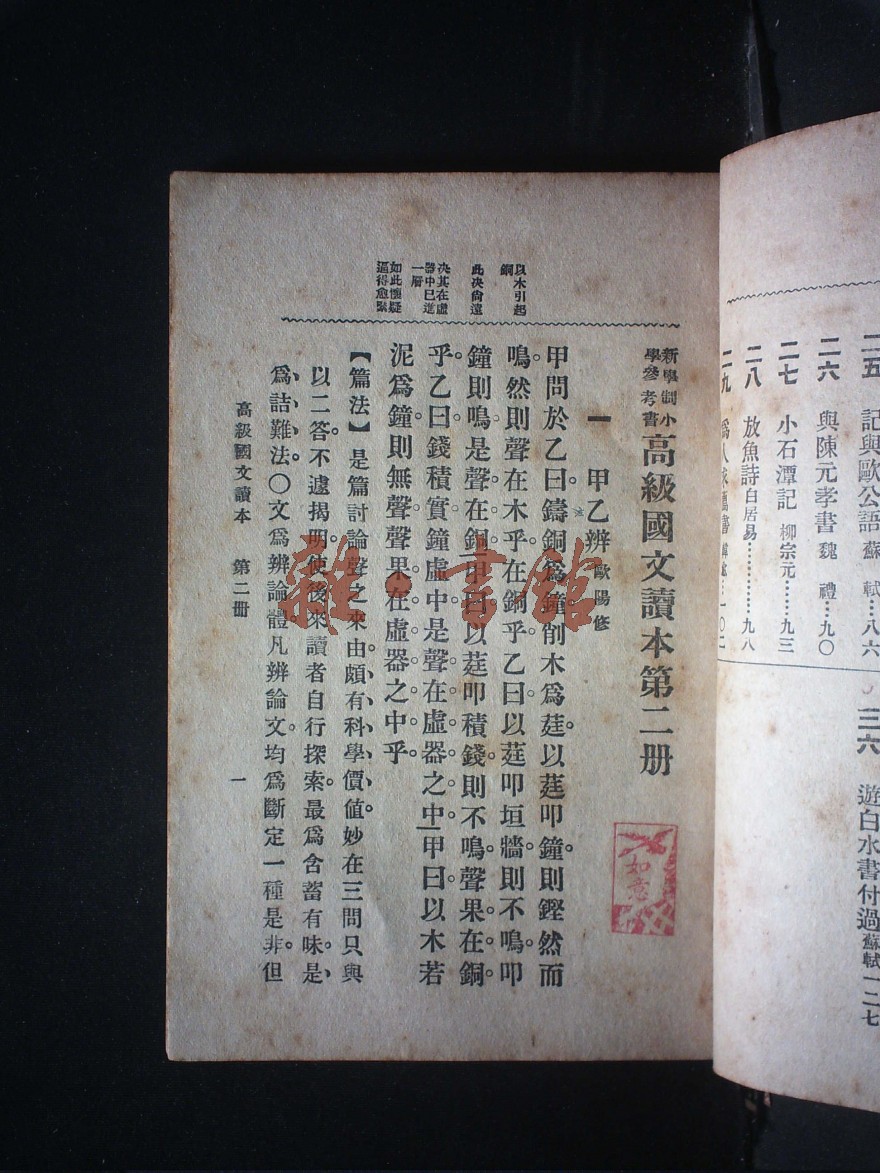 二五　記與歐公語　蘇　軾…八六
二六　與陳元孝書　魏　禮…九〇
二七　小石潭記　柳宗元……九三
二八　放魚詩　白居易…………九八
二九　爲人求薦書　…一〇二
三六　遊白水書付過　蘇軾　一二七
新學制小學參考書　高級國文讀本第二册
一　甲乙辨　歐陽修
甲問於乙曰。鑄銅爲鐘。削木爲莛。以莛叩鐘。則鏗然而
鳴。然則聲在木乎。在銅乎。乙曰。以莛叩垣牆則不鳴。叩
鐘則鳴。是聲在銅。甲曰。以莛叩積錢則不鳴。聲果在銅
乎。乙曰。錢積實。鐘虛中。是聲在虛器之中。甲曰。以木若
泥爲鐘則無聲。聲果在虛器之中乎。
以木引起銅
此决尙遠
决其在虛器中已進一層
如此懷疑逼得愈緊
【篇法】是篇討論聲之來由、頗有科學價值。妙在三問只與
以二答。不遽揭明。使後來讀者自行探索。最爲含蓄有味。是
爲詰難法。〇文爲辨論體。凡辨論文。均爲斷定一種是非。但
高級國文讀本　第二册　一
如意
雜·書館